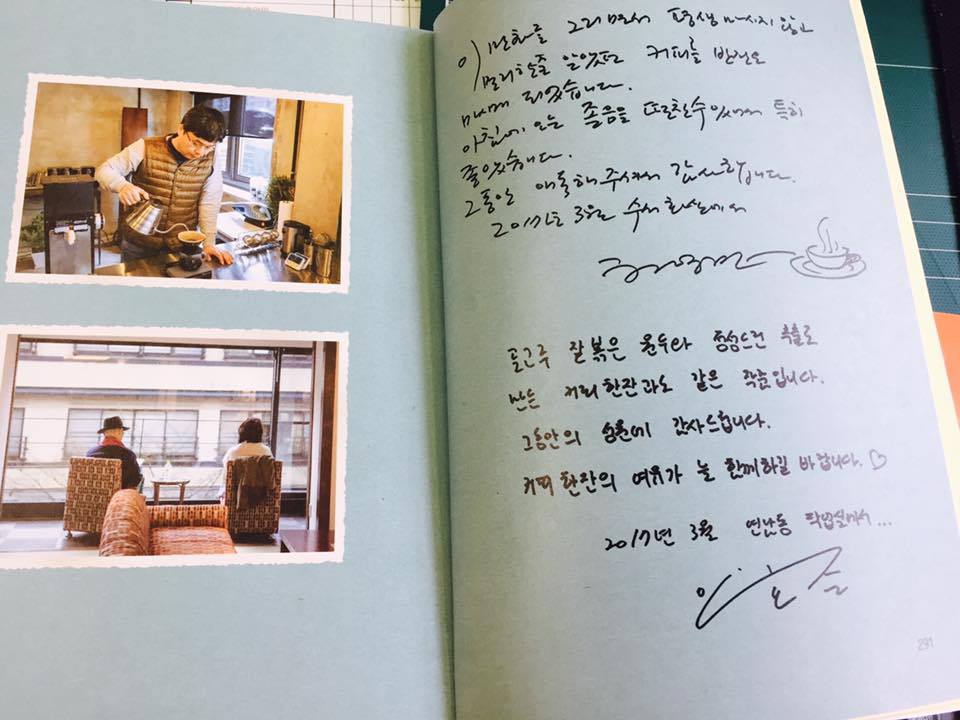 이 만화를 그리면서 평생 마시지 않고
멀리할줄 알았던 커피를 반겨
마시게 되었습니다.
아침에 오는 졸음을 또렷할수있어서 특히
좋았습니다.
그동안 애독해주셔서 감사합니다.
2017년 3월 수서 화실에서
잘 볶은 원두와 정성드런 추출로
만든 커피 한잔과도 같은 작품입니다.
그동안의 성원에 감사드립니다.
커피 한잔의 여유가 늘 함께하길 바랍니다.♡
2017년 3월 연남동 작업실에서...
291